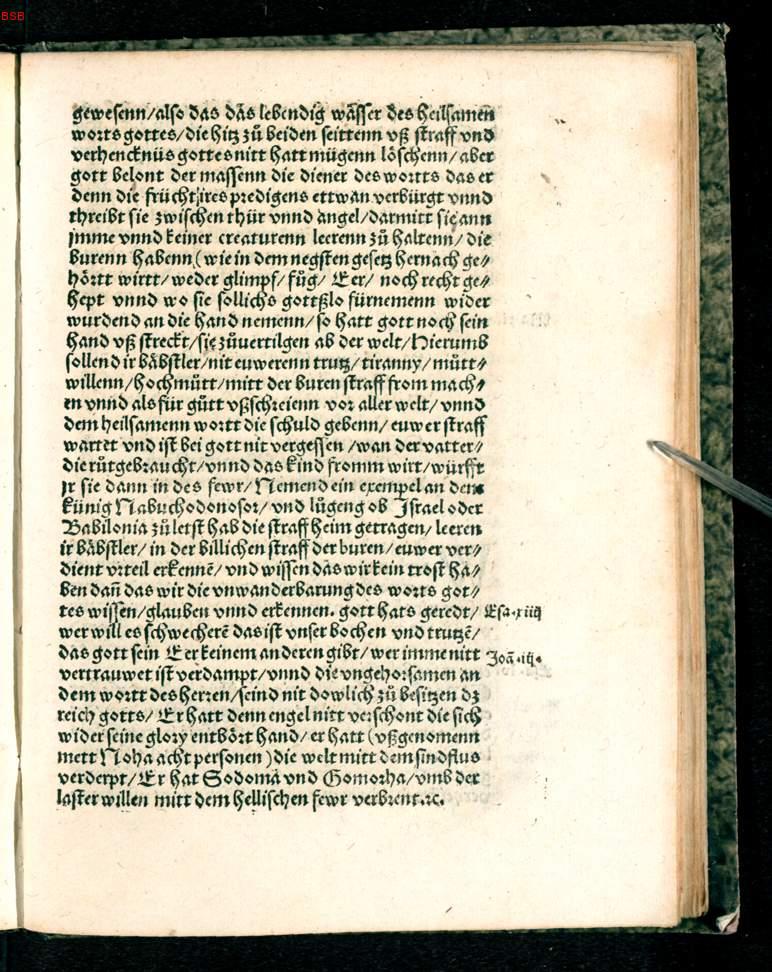 BSB
gewesenn/also das dãs lebendig wãsser des heilsamen
worts gottes/die hitz zů beiden seittenn vß straff vnd
verhencknüs gottes nitt hatt mügenn löschenn/aber
gott belont der massenn die diener des wortts das er
denn die frücht ires predigens ettwan verbürgt vnnd
threibt sie zwischen thür vnnd angel/darmitt sie ann
imme vnnd keiner creaturenn leerenn zů haltenn/die
burenn habenn (wie in dem negsten gesetz hernach ge⸗
hörtt wirtt/weder glimpf/fůg/Eer/noch recht ge⸗
hept vnnd wo sie sollichs gottßlo fürnemenn wider
wurdend an die hand nemenn/so hatt gott noch sein
hand vß streckt/sie zůvertilgen ab der welt/Hierumb
sollend ir bäbstler/nit euwerenn trutz/tiranny/můtt⸗
willenn/hochmůtt/mitt der buren straff from mach⸗
en vnnd als für gůtt vßschreienn vor aller welt/vnnd
dem heilsamenn wortt die schuld gebenn/euwer straff
wartet vnd ist bei gott nit vergessen/wan der vatter/
die růt gebraucht/vnnd das kind fromm wirt/würfft
er sie dann in des fewr/Nemend ein exempel an dem
künig Nabuchodonosor/vnd lůgeng ob Israel oder
Babilonia zů letst hab die straff heim getragen/leeren
ir bäbstler/in der billichen straff der buren/euwer ver⸗
dient vrteil erkennẽ/vnd wissen das wir kein trost ha⸗
ben dañ das wir die vnwanderbarung des worts got⸗
tes wissen/glauben vnnd erkennen. gott hats geredt/ Esa.xiiij
wer will es schwecherẽ das ist vnser bochen vnd trutzẽ/
das gott sein Eer keinem anderen gibt/wer imme nitt Joã.iij.
vertrauwet ist verdampt/vnnd die vngehorsamen an
dem wortt des herren/seind nit dowlich zů besitzen dz
reich gotts/Er hatt denn engel nitt verschont die sich
wider seine glory entbört hand/er hatt (vßgenomenn
mett Noha acht personen) die welt mitt dem sindflus
verderpt/Er hat Sodoma vnd Gomorha/vmb der
laster willen mitt dem hellischen fewr verbrent.ꝛc.